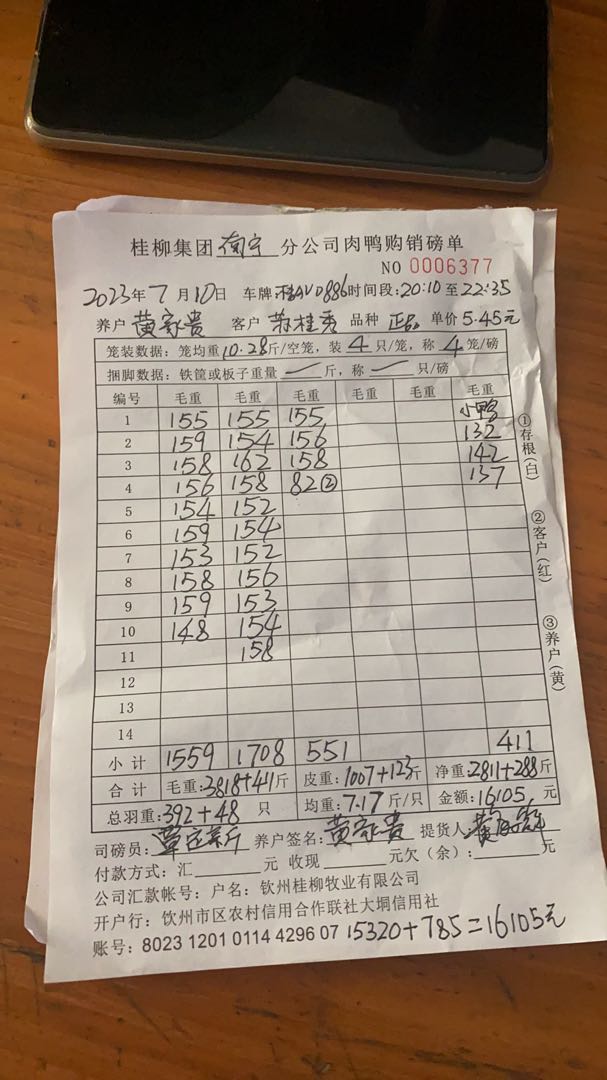 桂柳集团 南宁 分公司肉鸭购销磅单
NO 0006377
2023年 7 月 10日 车牌:桂AVD886 时间段:20:10 至 22:35
养户 黄家贵 客户 苏桂秀 品种 正品 单价 5.45元
笼装数据:笼均重10.28斤/空笼,装 4 只/笼,称 4 笼/磅
捆脚数据:铁筐或板子重量 — 斤,称 — 只/磅
编号 毛重 毛重 毛重 毛重 毛重 毛重
1 155 155 155 小鸭
2 159 154 156 132
3 158 162 158 142
4 156 158 82② 137
5 154 152
6 159 154
7 153 152
8 158 156
9 159 153
10 148 154
11 158
12
13
14
小计 1559 1708 551 411
合计 毛重:3818+411斤 皮重:1007+123斤 净重:2811+288斤
总羽重:392+48 只 均重:7.17 斤/只 金额:16105 元
司磅员: 养户签名:黄家贵 提货人:
付款方式:汇 元 收现 元欠(余): 元
公司汇款帐号:户名:钦州桂柳牧业有限公司
开户行:钦州市区农村信用合作联社大垌信用社
账号:8023 1201 0114 4296 07 15320+785=16105元
①存根(白)
②客户(红)
③养户(黄)